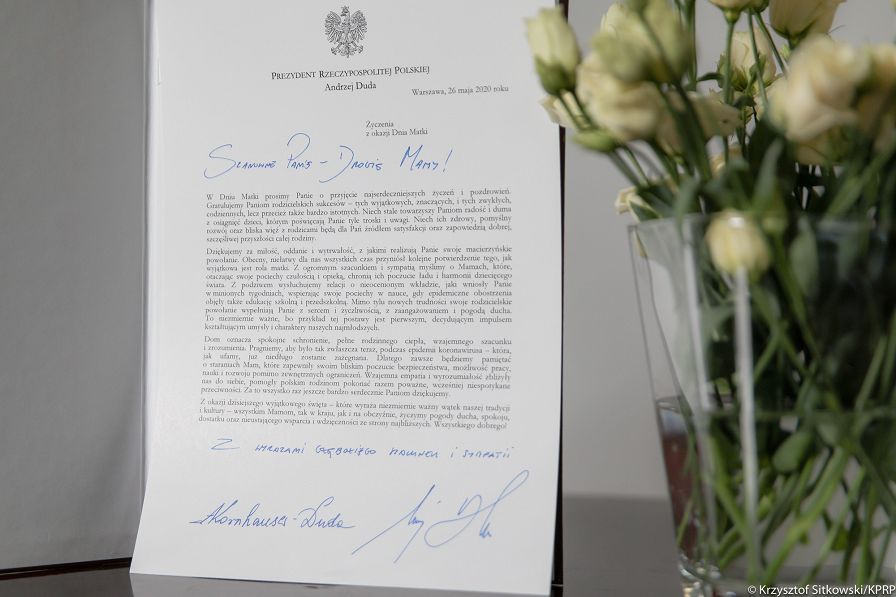 PREZYDENT RZECZYPOSPOLITEJ POLSKIEJ
Andrzej Duda
Warszawa, 26 maja 2020 roku
Życzenia
z okazji Dnia Matki
Szanowne Panie – Drogie Mamy!
W Dniu Matki prosimy Panie o przyjęcie najserdeczniejszych życzeń i pozdrowień.
Gratulujemy Paniom rodzicielskich sukcesów – tych wyjątkowych, znaczących, i tych zwykłych,
codziennych, lecz przecież także bardzo istotnych. Niech stale towarzyszy Paniom radość i duma
z osiągnięć dzieci, którym poświęcają Panie tyle troski i uwagi. Niech ich zdrowy, pomyślny
rozwój oraz bliska więź z rodzicami będą dla Pań źródłem satysfakcji oraz zapowiedzią dobrej,
szczęśliwej przyszłości całej rodziny.
Dziękujemy za miłość, oddanie i wytrwałość, z jakimi realizują Panie swoje macierzyńskie
powołanie. Obecny, niełatwy dla nas wszystkich czas przyniósł kolejne potwierdzenie tego, jak
wyjątkowa jest rola matki. Z ogromnym szacunkiem i sympatią myślimy o Mamach, które,
otaczając swoje pociechy czułością i opieką, chronią ich poczucie ładu i harmonii dziecięcego
świata. Z podziwem wysłuchujemy relacji o nieocenionym wkładzie, jaki wniosły Panie
w minionych tygodniach, wspierając swoje pociechy w nauce, gdy epidemiczne obostrzenia
objęły także edukację szkolną i przedszkolną. Mimo tylu nowych trudności swoje rodzicielskie
powołanie wypełniają Panie z sercem i życzliwością, z zaangażowaniem i pogodą ducha.
To niezmiernie ważne, bo przykład tej postawy jest pierwszym, decydującym impulsem
kształtującym umysły i charaktery naszych najmłodszych.
Dom oznacza spokojne schronienie, pełne rodzinnego ciepła, wzajemnego szacunku
i zrozumienia. Pragniemy, aby było tak zwłaszcza teraz, podczas epidemii koronawirusa – która,
jak ufamy, już niedługo zostanie zażegnana. Dlatego zawsze będziemy pamiętać
o staraniach Mam, które zapewniały swoim bliskim poczucie bezpieczeństwa, możliwość pracy,
nauki i rozwoju pomimo zewnętrznych ograniczeń. Wzajemna empatia i wyrozumiałość zbliżyły
nas do siebie, pomogły polskim rodzinom pokonać razem poważne, wcześniej niespotykane
przeciwności. Za to wszystko raz jeszcze bardzo serdecznie Paniom dziękujemy.
Z okazji dzisiejszego wyjątkowego święta – które wyraża niezmiernie ważny wątek naszej tradycji
i kultury – wszystkim Mamom, tak w kraju, jak i na obczyźnie, życzymy pogody ducha, spokoju,
dostatku oraz nieustającego wsparcia i wdzięczności ze strony najbliższych. Wszystkiego dobrego!
Z wyrazami głębokiego szacunku i sympatii
AKornhauser-Duda
© Krzysztof Sitkowski/KPRP